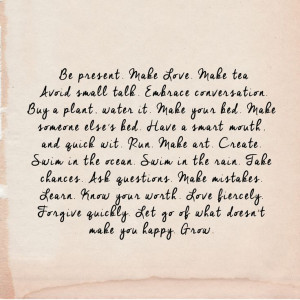 Be present. Make Love. Make tea
Avoid small talk. Embrace conversation.
Buy a plant, water it. Make your bed. Make
someone else's bed. Have a smart mouth,
and quick wit. Run. Make art. Create.
Swim in the ocean. Swim in the rain. Take
chances. Ask questions. Make mistakes.
Learn. Know your worth. Love fiercely.
Forgive quickly. Let go of what doesn't
make you happy. Grow.